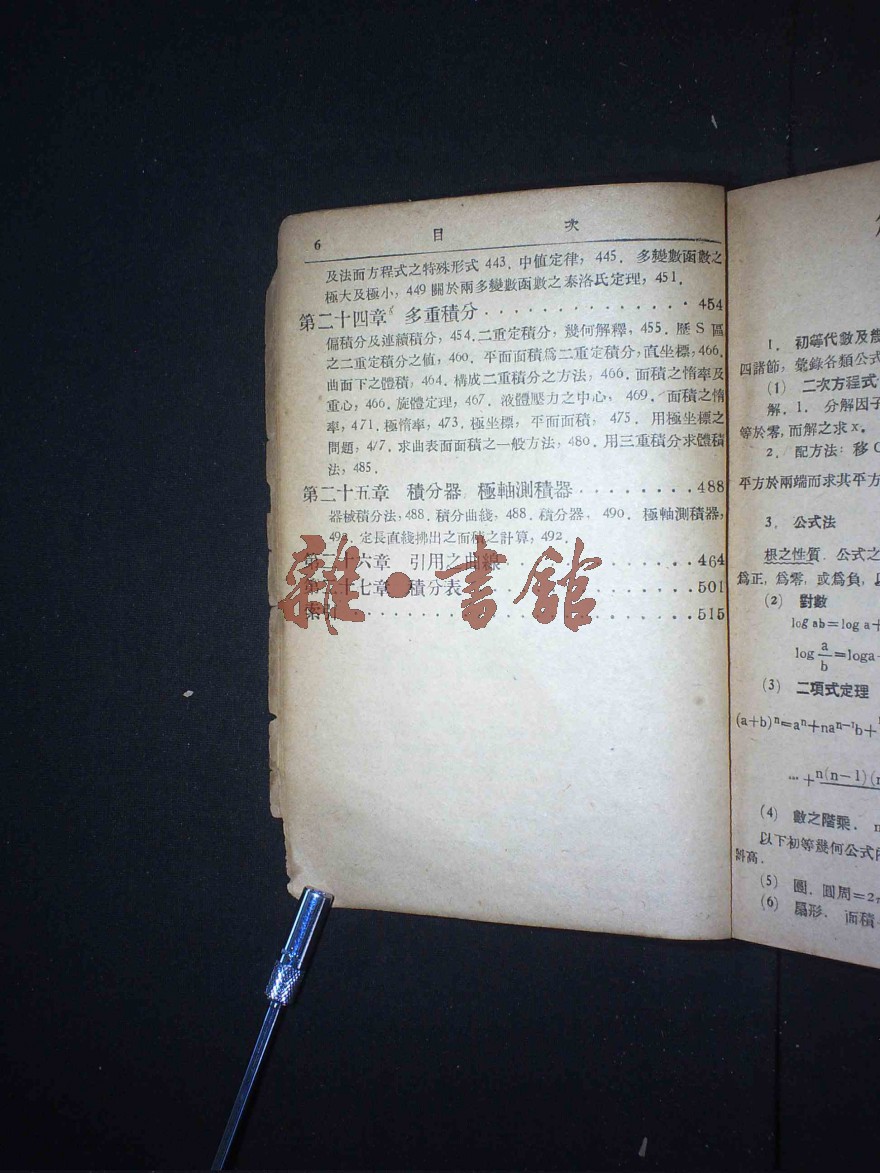 6 目 次
及法面方程式之特殊形式 443．中值定律，445． 多變數函數之
極大及極小，449 關於兩多變數函數之泰洛氏定理，451．
第二十四章 多重積分 · · · · · · · · · · · · · · · 454
偏積分及連續積分，454．二重定積分，幾何解釋，455．歷 S 區
之二重定積分之值，460．平面面積爲二重定積分，直坐標，466．
曲面下之體積，464．構成二重積分之方法，466．面積之惰率及
重心，466．旋體定理，467．液體壓力之中心， 469．面積之惰
率，471．極惰率，473．極坐標，平面面積， 475． 用極坐標之
問題，4/7．求曲表面面積之一般方法，480．用三重積分求體積
法，485．
第二十五章 積分器 極軸測積器 · · · · · · · · 488
器械積分法，488．積分曲綫，488．積分器， 490． 極軸測積器，
定長直綫拂出之面積之計算，492．
第二十六章 引用之曲線 · · · · · · · · · · · · 464
第二十七章 積分表 · · · · · · · · · · · · · · 501
索引 · · · · · · · · · · · · · · · · · · · 515
雜·書館
1． 初等代數及幾
四諸節，彙錄各類公式
(1) 二次方程式
解．1． 分解因子
等於零，而解之求 x。
2． 配方法：移 C
平方於兩端而求其平方
3． 公式法
根之性質．公式之
爲正，爲零，或爲負，
(2) 對數
log ab=log a+
log a/b =loga-
(3) 二項式定理
(a+b)ⁿ=aⁿ+naⁿ⁻¹b+
… +n(n−1)(
(4) 數之階乘． n
以下初等幾何公式
斜高．
(5) 圓．圓周=2
(6) 扇形． 面積